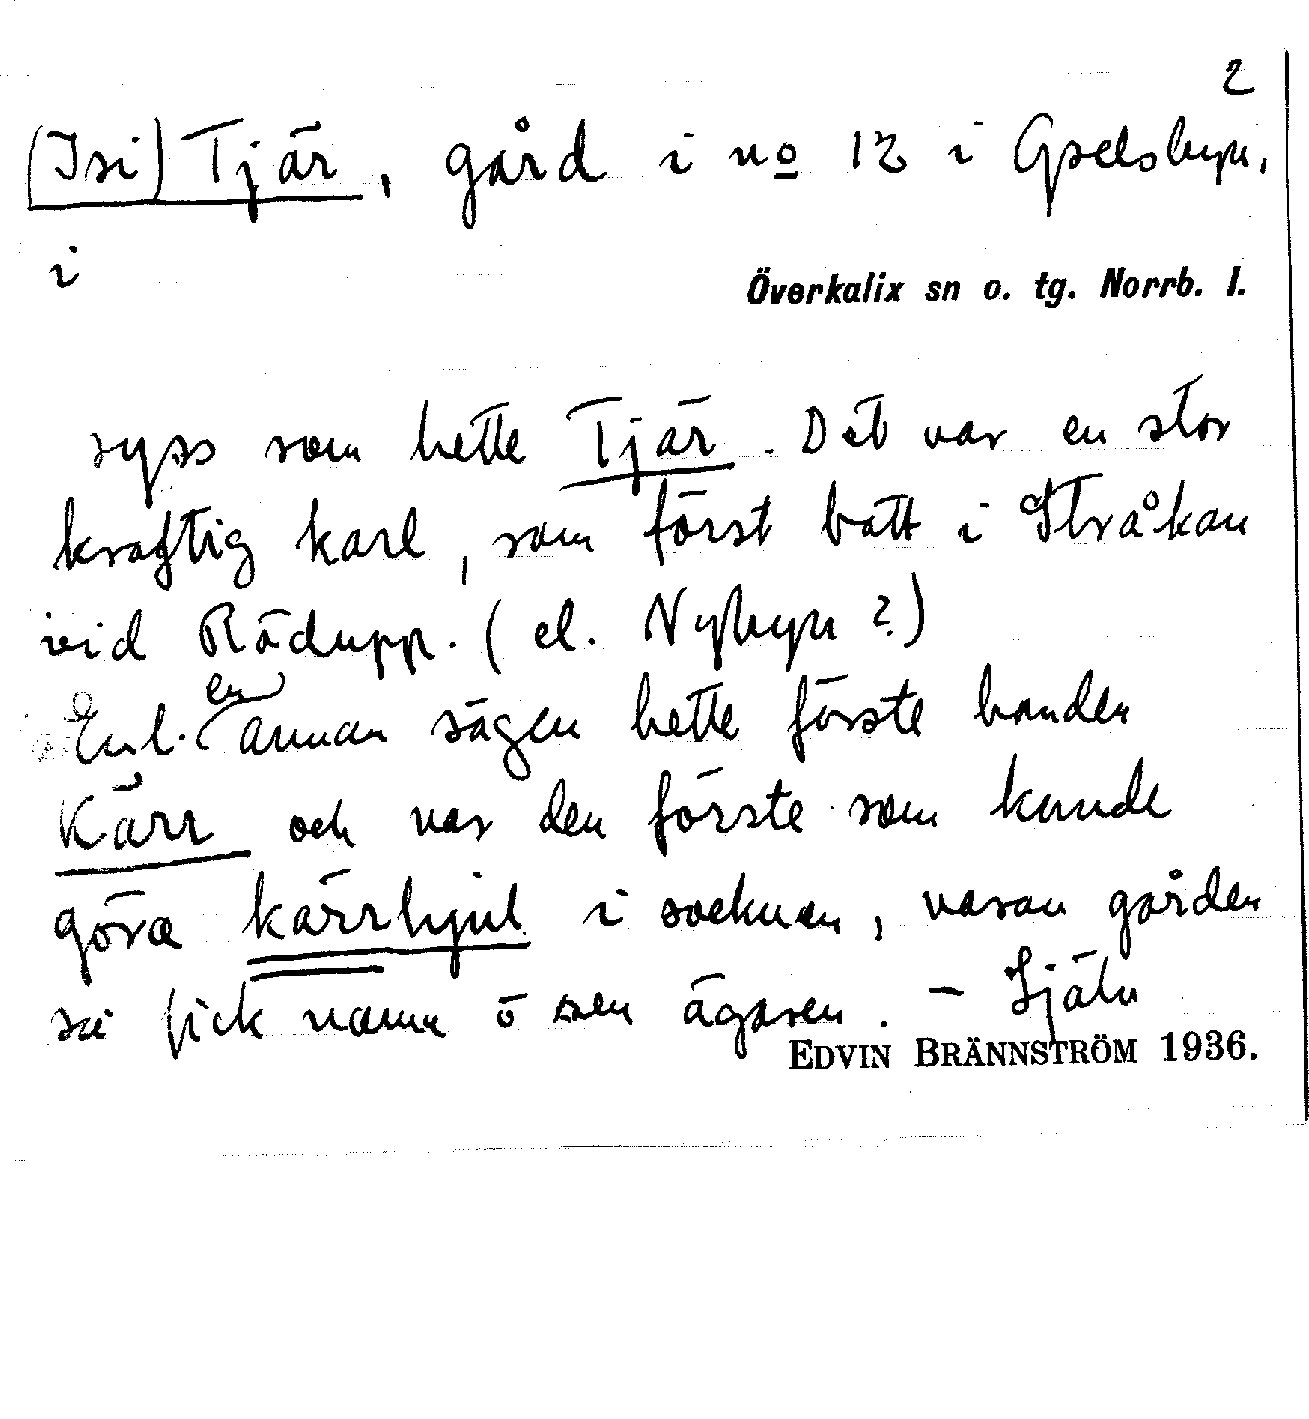 2
(Isi) Tjär, gård i no 12 i Gyselsbyn,
i
Överkalix sn o. tg. Norrb. l.
ryss som hette Tjär. Det var en stor
kraftig karl, som först bott i Stråkan
vid Rödupp. (el. Nybyn?)
Enl. en annan sägen hette förste bonden
Kärr och var den förste som kunde
göra kärrhjul i socknen, varav gården
så fick namn o sen ägaren. – Själv
EDVIN BRÄNNSTRÖM 1936.